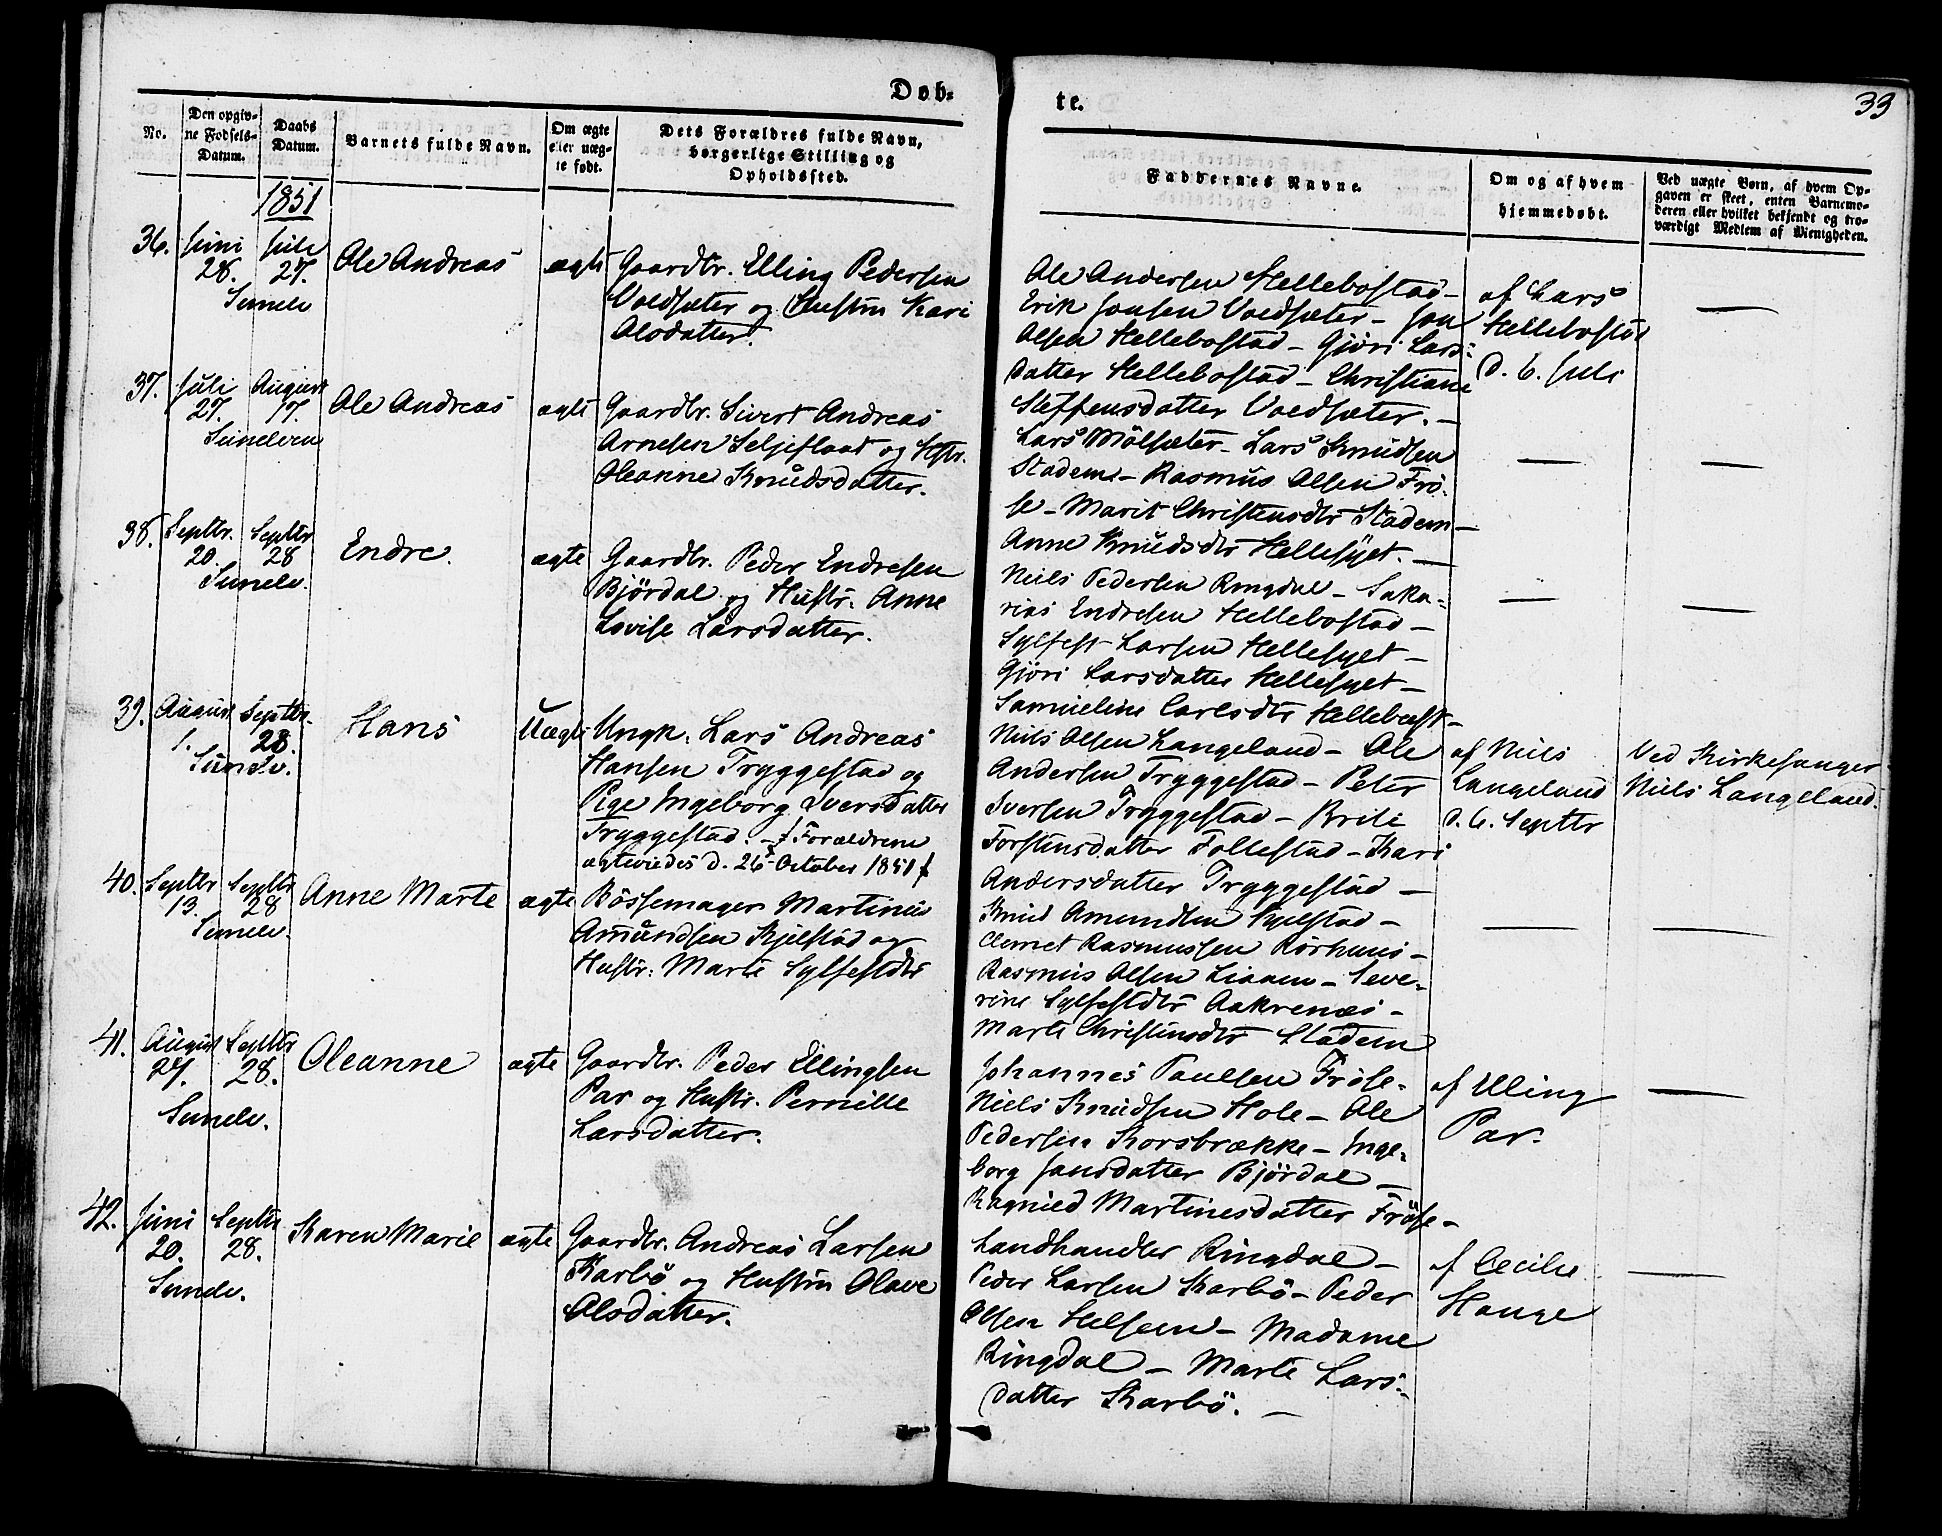 Døb-
te.
33
No.
Den opgiv-
ne Fødsels-
Datum.
Daabs
Datum.
Barnets fulde Navn.
Om ægte
eller uæg-
te født.
Dets Forældres fulde Navn,
borgerlige Stilling og
Opholdssted.
Faddernes Navne.
Om og af hvem
hjemmedøbt.
Ved uægte Børn, af hvem Op-
gaven er skeet, enten Barnemo-
deren eller hvilket bekjendt og tro-
værdigt Medlem af Menigheden.
1851
36. Juni Juli Ole Andreas ægte Gaardbr. Elling Pedersen
28. 27. Voldsæter og Hustru Kari
Sunelv Olsdatter.
Ole Andersen Hellebostad-
Erik Jonsen Voldsæter - Jon
Olsen Hellebostad - Gjøri Lars-
datter Hellebostad - Christiane
Steffensdatter Voldsæter. -
af Lars
Hellebostad
d. 6. Juli
—
37. Juli August Ole Andreas ægte Gaardbr. Sivert Andreas
27. 17. Arnesen Seljeflaat og Hstr.
Sunelven Oleanne Knudsdatter.
Lars Mölsæter - Lars Knudsen
Stadem - Rasmus Olsen Frö-
se - Marit Christensdtr Stadem -
Anne Knudsdtr Hellesyet. -
—
—
38. Septbr. Septbr Endre. ægte Gaardbr. Peder Endresen
20. 28 Björdal og Hustr. Anne
Sunelv. Lovise Larsdatter.
Niels Pedersen Ringdal - Saka-
rias Endresen Hellebostad -
Sylfest Larsen Hellesyet -
Gjöri Larsdatter Hellesyet -
Samueline Carlsdtr Hellebost -
—
—
39. August Septbr. Hans Uægte Ungk. Lars Andreas
1. 28. Hansen Tryggestad og
Sunelv. Pige Ingeborg Iversdatter
Tryggestad. - Forældrene
ægteviedes d. 26 October 1851
Niels Olsen Langeland - Ole
Andersen Tryggestad - Peter
Iversen Tryggestad - Brite
Torstensdatter Tollestad - Kari
Andersdatter Tryggestad -
af Niels
Langeland
d. 6. Septbr
Ved Kirkesanger
Niels Langeland.
40. Septbr Septbr Anne Marte ægte Bössemager Martinus
13. 28 Amundsen Kjelstad og
Sunelv. Hustr: Marte Sylfestdtr
Knud Amundsen Kjelstad -
Clemet Rasmussen Rörhuus -
Rasmus Olsen Liaaen - Seve-
rine Sylfestdtr Aakrenæs -
Marte Christensdtr Stadem
—
—
41. August Septbr Oleanne ægte Gaardbr. Peder Ellingsen
27. 28. Par og Hustr. Pernille
Sunelv. Larsdatter.
Johannes Paulsen Fröse-
Niels Knudsen Hole - Ole
Pedersen Korsbrække - Inge-
borg Jonsdatter Björdal -
Ragnild Martinesdatter Fröse -
af Elling
Par.
—
42. Juni Septbr Karen Marie ægte Gaardbr. Andreas Larsen
20. 28. Karbö og Hustru Olave
Sunelv. Olsdatter.
Landhandler Ringdal -
Peder Larsen Karbö - Peder
Olsen Helsem - Madame
Ringdal - Marte Lars-
datter Karbö. -
af Cecilie
Hauge
—